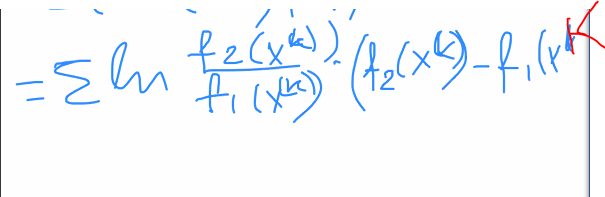 = Σ ln f₂(x^(k)) / f₁(x^(k)) · (f₂(x^k) - f₁(x^k